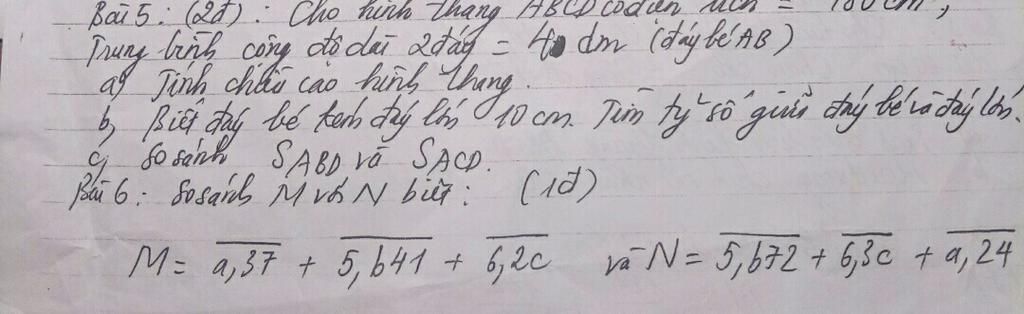 Bài 5: (2đ): Cho hình thang ABCD có diện tích = 180 cm,
Trung bình cộng độ dài 2 đáy = 4 dm (đáy bé AB)
a) Tính chiều cao hình thang.
b, Biết đáy bé kém đáy lớn 10 cm. Tìm tỷ số giữa đáy bé và đáy lớn.
c, So sánh SABD và SACD.
Bài 6: So sánh M với N biết: (1đ)
M = a,37 + 5,b41 + 6,2c và N = 5,b72 + 6,3c + a,24